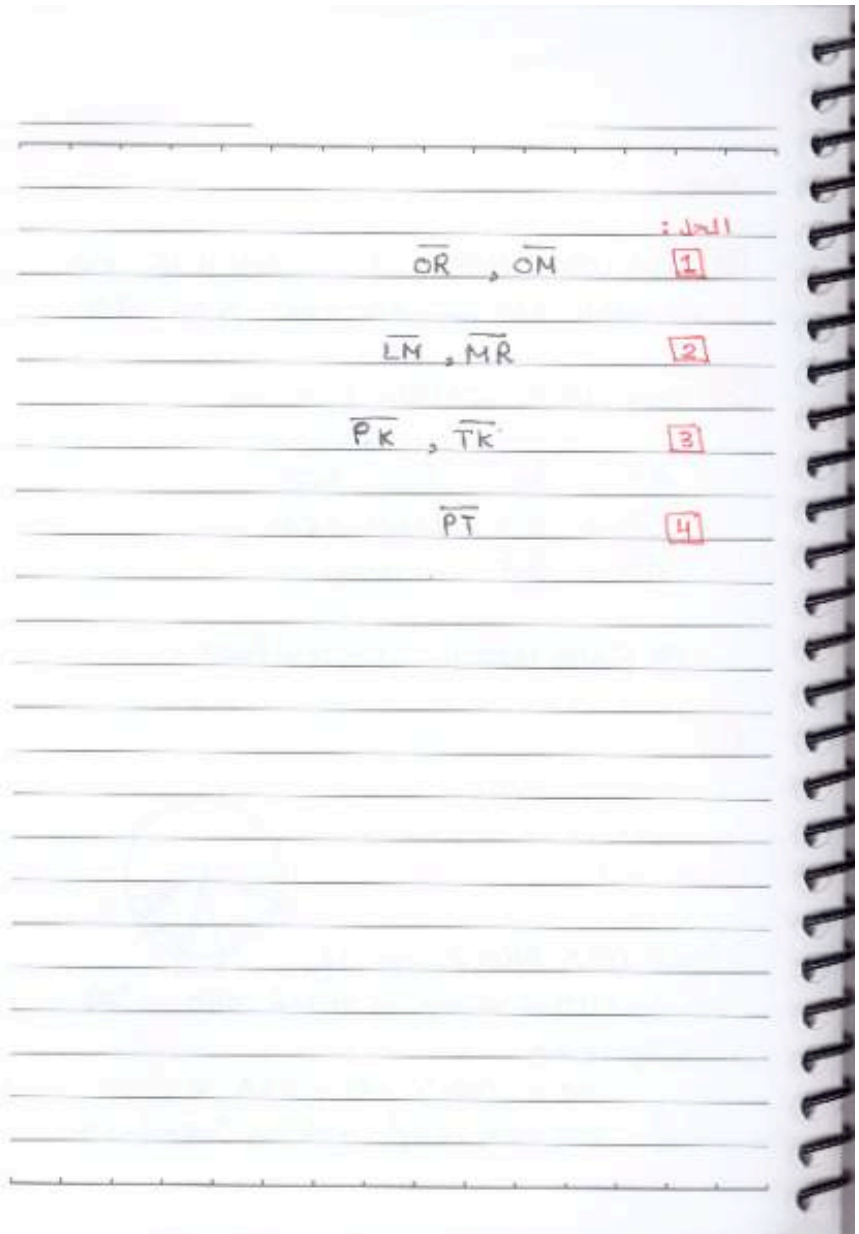 الحل :
1 OR , OM
2 LM , MR
3 PK , TK
4 PT